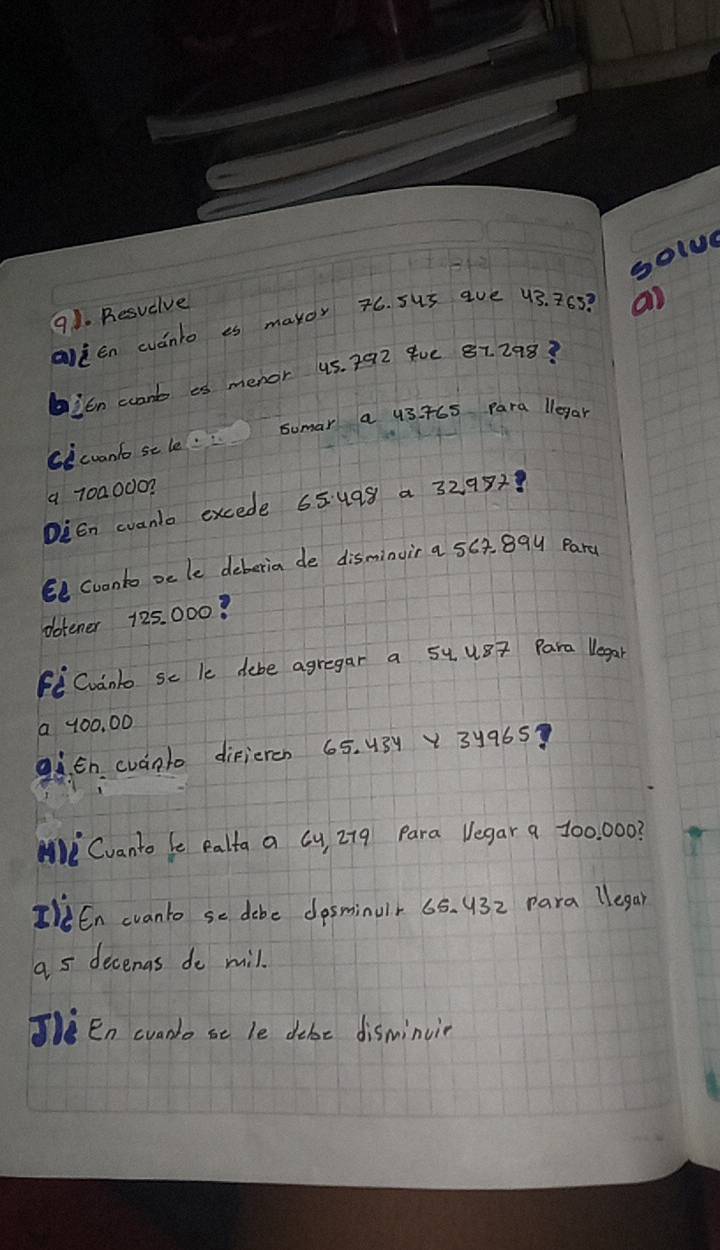 9). Resuelve
a)¿ En cuánto es mayor 76.545 que 43.765?
b¿ En cuanto es menor 45.792 que 87.298?
C¿ cuanto se le sumar a 43.765 para llegar
a 100.000?
D¿ En cuanto excede 65.498 a 32.987?
E¿ Cuanto se le deberia de disminuir a 567.894 Para
obtener 125.000?
F¿ Cuánto se le debe agregar a 54.487 Para llegar
a 400.00
g¿ En cuánto difieren 65.434 y 34965?
H)¿ Cuanto le falta a 64,219 Para llegar a 100.000?
I)¿ En cuanto se debe desminuir 65.432 para llegar
a 5 decenas de mil.
J)¿ En cuanto se le debe disminuir
a)